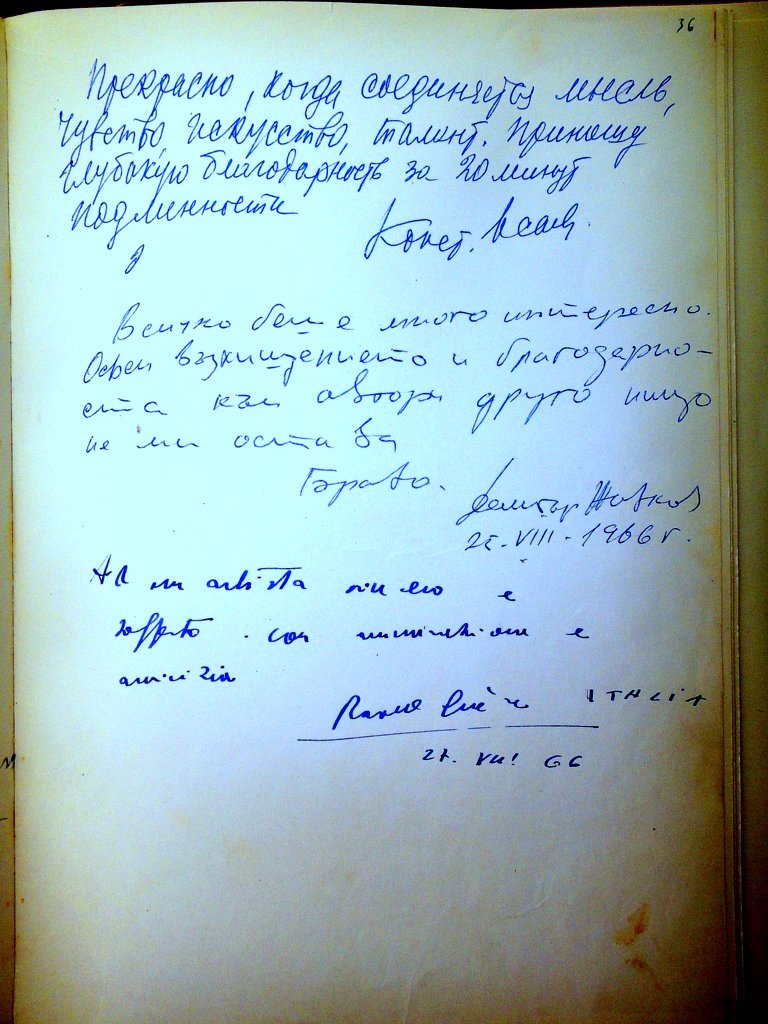 36
Прекрасно, когда соединяется мысль,
чувство, искусство, талант. Приношу
глубокую благодарность за 20 минут
подлинности
Конст.
Всичко беше много интересно.
Освен възхищението и благодарно-
ста към автора друго нищо
не ми остава
Браво.
Димитър Живков
VIII - 1966 г.
Al un artista sincero e
sofferto. con ammirazione e
amicizia
ITALIA
66